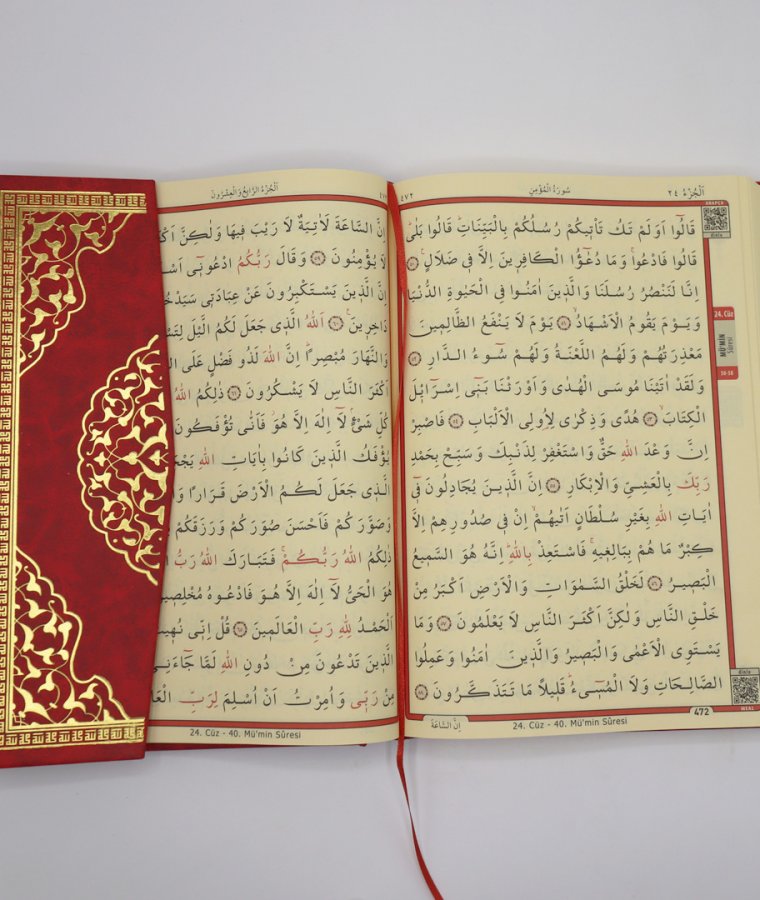 اَلْجُزْءُ ٢٤
سُورَةُ الْمُؤْمِنِ
٤٧٢
ARAPÇA
dinle
24. Cüz
MÜ'MİN
Sûresi
50-58
قَالُٓوا اَوَلَمْ تَكُ تَأْت۪يكُمْ رُسُلُكُمْ بِالْبَيِّنَاتِۜ قَالُوا بَلٰىۜ
قَالُوا فَادْعُواۚ وَمَا دُعٰٓؤُا الْكَافِر۪ينَ اِلَّا ف۪ي ضَلَالٍ۟
اِنَّا لَنَنْصُرُ رُسُلَنَا وَالَّذ۪ينَ اٰمَنُوا فِي الْحَيٰوةِ الدُّنْيَا
وَيَوْمَ يَقُومُ الْاَشْهَادُۙ يَوْمَ لَا يَنْفَعُ الظَّالِم۪ينَ
مَعْذِرَتُهُمْ وَلَهُمُ اللَّعْنَةُ وَلَهُمْ سُٓوءُ الدَّارِ
وَلَقَدْ اٰتَيْنَا مُوسَى الْهُدٰى وَاَوْرَثْنَا بَن۪ٓي اِسْرَٓا۪ئلَ
الْكِتَابَۙ هُدًى وَذِكْرٰى لِاُو۬لِي الْاَلْبَابِ فَاصْبِرْ
اِنَّ وَعْدَ اللّٰهِ حَقٌّ وَاسْتَغْفِرْ لِذَنْبِكَ وَسَبِّحْ بِحَمْدِ
رَبِّكَ بِالْعَشِيِّ وَالْاِبْكَارِ اِنَّ الَّذ۪ينَ يُجَادِلُونَ ف۪ٓي
اٰيَاتِ اللّٰهِ بِغَيْرِ سُلْطَانٍ اَتٰيهُمْۙ اِنْ ف۪ي صُدُورِهِمْ اِلَّا
كِبْرٌ مَا هُمْ بِبَالِغ۪يهِۚ فَاسْتَعِذْ بِاللّٰهِۜ اِنَّهُ هُوَ السَّم۪يعُ
الْبَص۪يرُ لَخَلْقُ السَّمٰوَاتِ وَالْاَرْضِ اَكْبَرُ مِنْ
خَلْقِ النَّاسِ وَلٰكِنَّ اَكْثَرَ النَّاسِ لَا يَعْلَمُونَ وَمَا
يَسْتَوِي الْاَعْمٰى وَالْبَص۪يرُ وَالَّذ۪ينَ اٰمَنُوا وَعَمِلُوا
الصَّالِحَاتِ وَلَا الْمُس۪ٓيءُۜ قَل۪يلًا مَا تَتَذَكَّرُونَ
dinle
MEAL
472
24. Cüz - 40. Mü'min Sûresi
اِنَّ السَّاعَةَ
اَلْجُزْءُ الرَّابِعُ وَالْعِشْرُونَ
اِنَّ السَّاعَةَ لَاٰتِيَةٌ لَا رَيْبَ ف۪يهَا وَلٰكِنَّ
لَا يُؤْمِنُونَ وَقَالَ رَبُّكُمُ ادْعُون۪ٓي
اِنَّ الَّذ۪ينَ يَسْتَكْبِرُونَ عَنْ عِبَادَت۪ي
دَاخِر۪ينَ اَللّٰهُ الَّذ۪ي جَعَلَ لَكُمُ الَّيْلَ
وَالنَّهَارَ مُبْصِرًاۜ اِنَّ اللّٰهَ لَذُو فَضْلٍ عَلَى
اَكْثَرَ النَّاسِ لَا يَشْكُرُونَ ذٰلِكُمُ اللّٰهُ
كُلِّ شَيْءٍۢ لَٓا اِلٰهَ اِلَّا هُوَۘ فَاَنّٰى تُؤْفَكُونَ
يُؤْفَكُ الَّذ۪ينَ كَانُوا بِاٰيَاتِ اللّٰهِ
اَلَّذ۪ي جَعَلَ لَكُمُ الْاَرْضَ قَرَارًا
وَصَوَّرَكُمْ فَاَحْسَنَ صُوَرَكُمْ وَرَزَقَكُمْ
ذٰلِكُمُ اللّٰهُ رَبُّكُمْۚ فَتَبَارَكَ اللّٰهُ رَبُّ
هُوَ الْحَيُّ لَٓا اِلٰهَ اِلَّا هُوَ فَادْعُوهُ
اَلْحَمْدُ لِلّٰهِ رَبِّ الْعَالَم۪ينَ قُلْ اِنّ۪ي
الَّذ۪ينَ تَدْعُونَ مِنْ دُونِ اللّٰهِ لَمَّا
مِنْ رَبّ۪ي وَاُمِرْتُ اَنْ اُسْلِمَ لِرَبِّ
24. Cüz - 40. Mü'min Sûresi